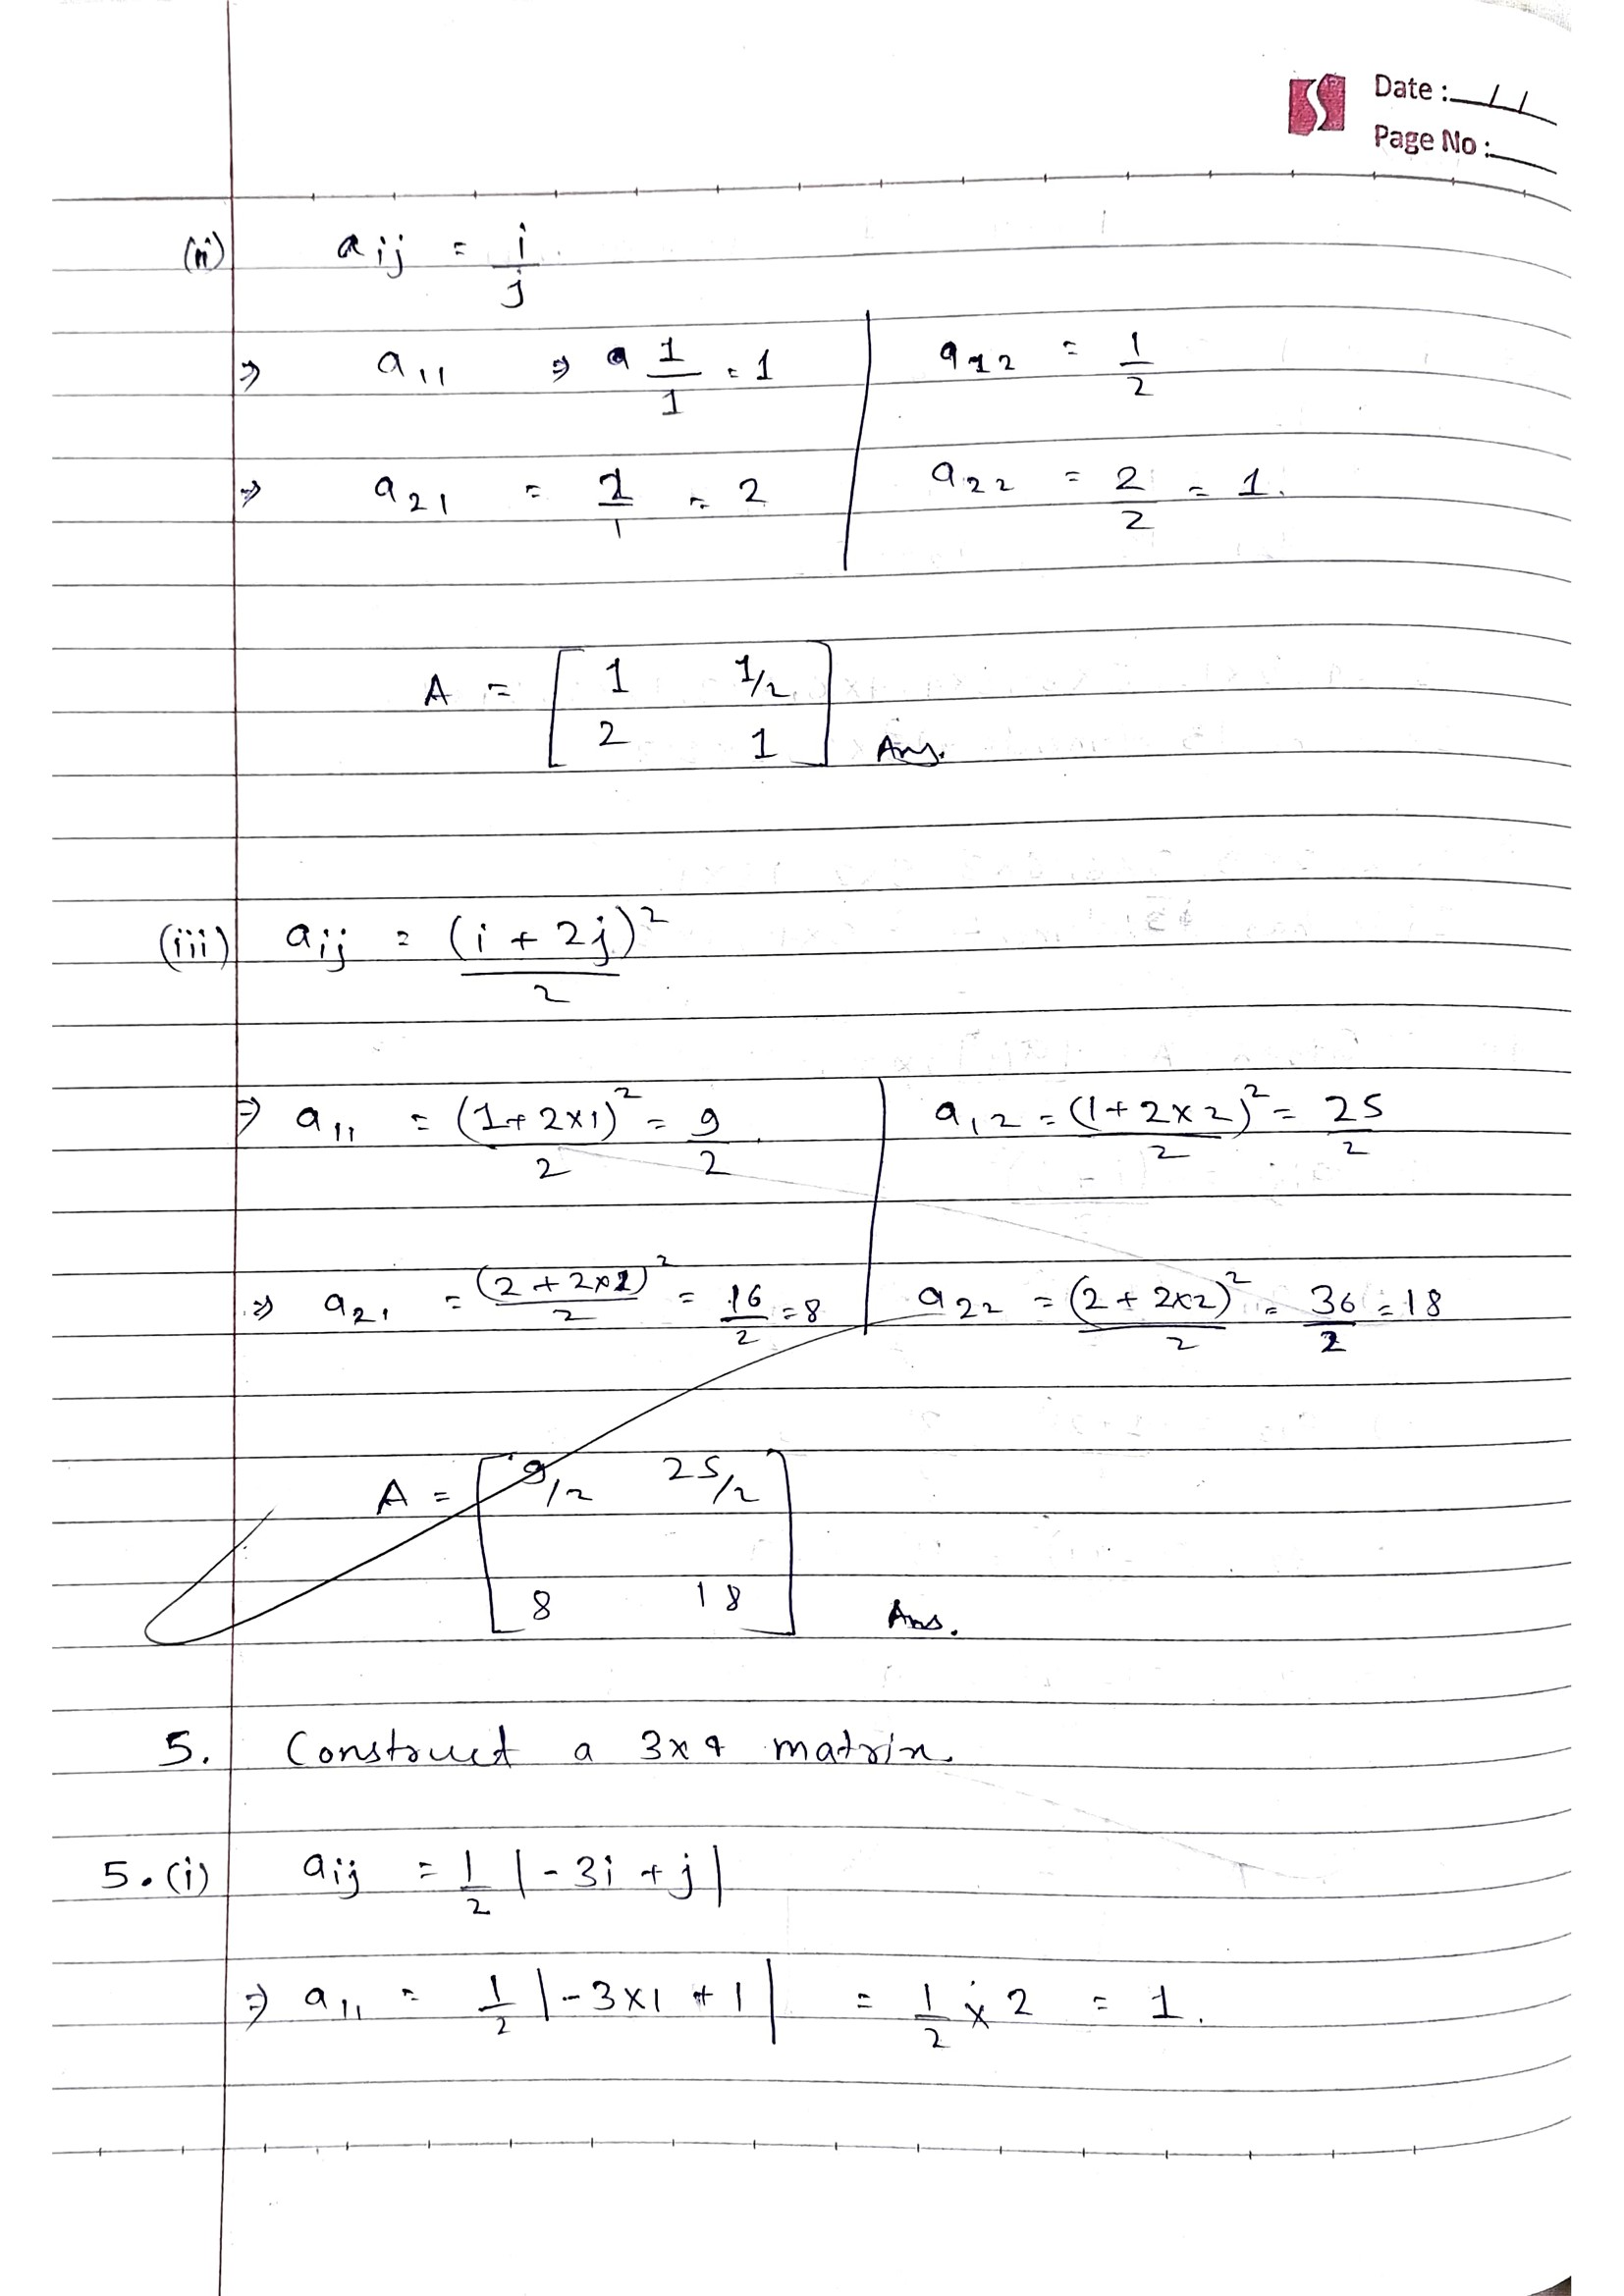 Date : / /
Page No :
(ii) aij = i/j
⇒ a11 ⇒ a 1/1 = 1 | a12 = 1/2
⇒ a21 = 2/1 = 2 | a22 = 2/2 = 1.
A = [ 1 1/2
2 1 ] Ans.
(iii) aij = (i + 2j)²/2
⇒ a11 = (1+2×1)²/2 = 9/2 | a12 = (1+2×2)²/2 = 25/2
⇒ a21 = (2+2×1)²/2 = 16/2 = 8 | a22 = (2+2×2)²/2 = 36/2 = 18
A = [ 9/2 25/2
8 18 ] Ans.
5. Construct a 3×4 matrix.
5.(i) aij = 1/2 |-3i + j|
⇒ a11 = 1/2 |-3×1 + 1| = 1/2 × 2 = 1.